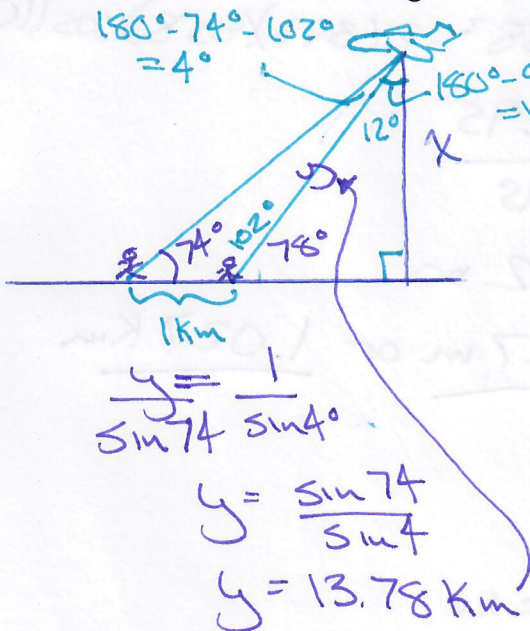 180°-74°-102°
= 4°
180°-
=
12°
x
y
74°
102°
78°
1Km
y/sin 74 = 1/sin 4°
y = sin 74/sin 4
y = 13.78 Km